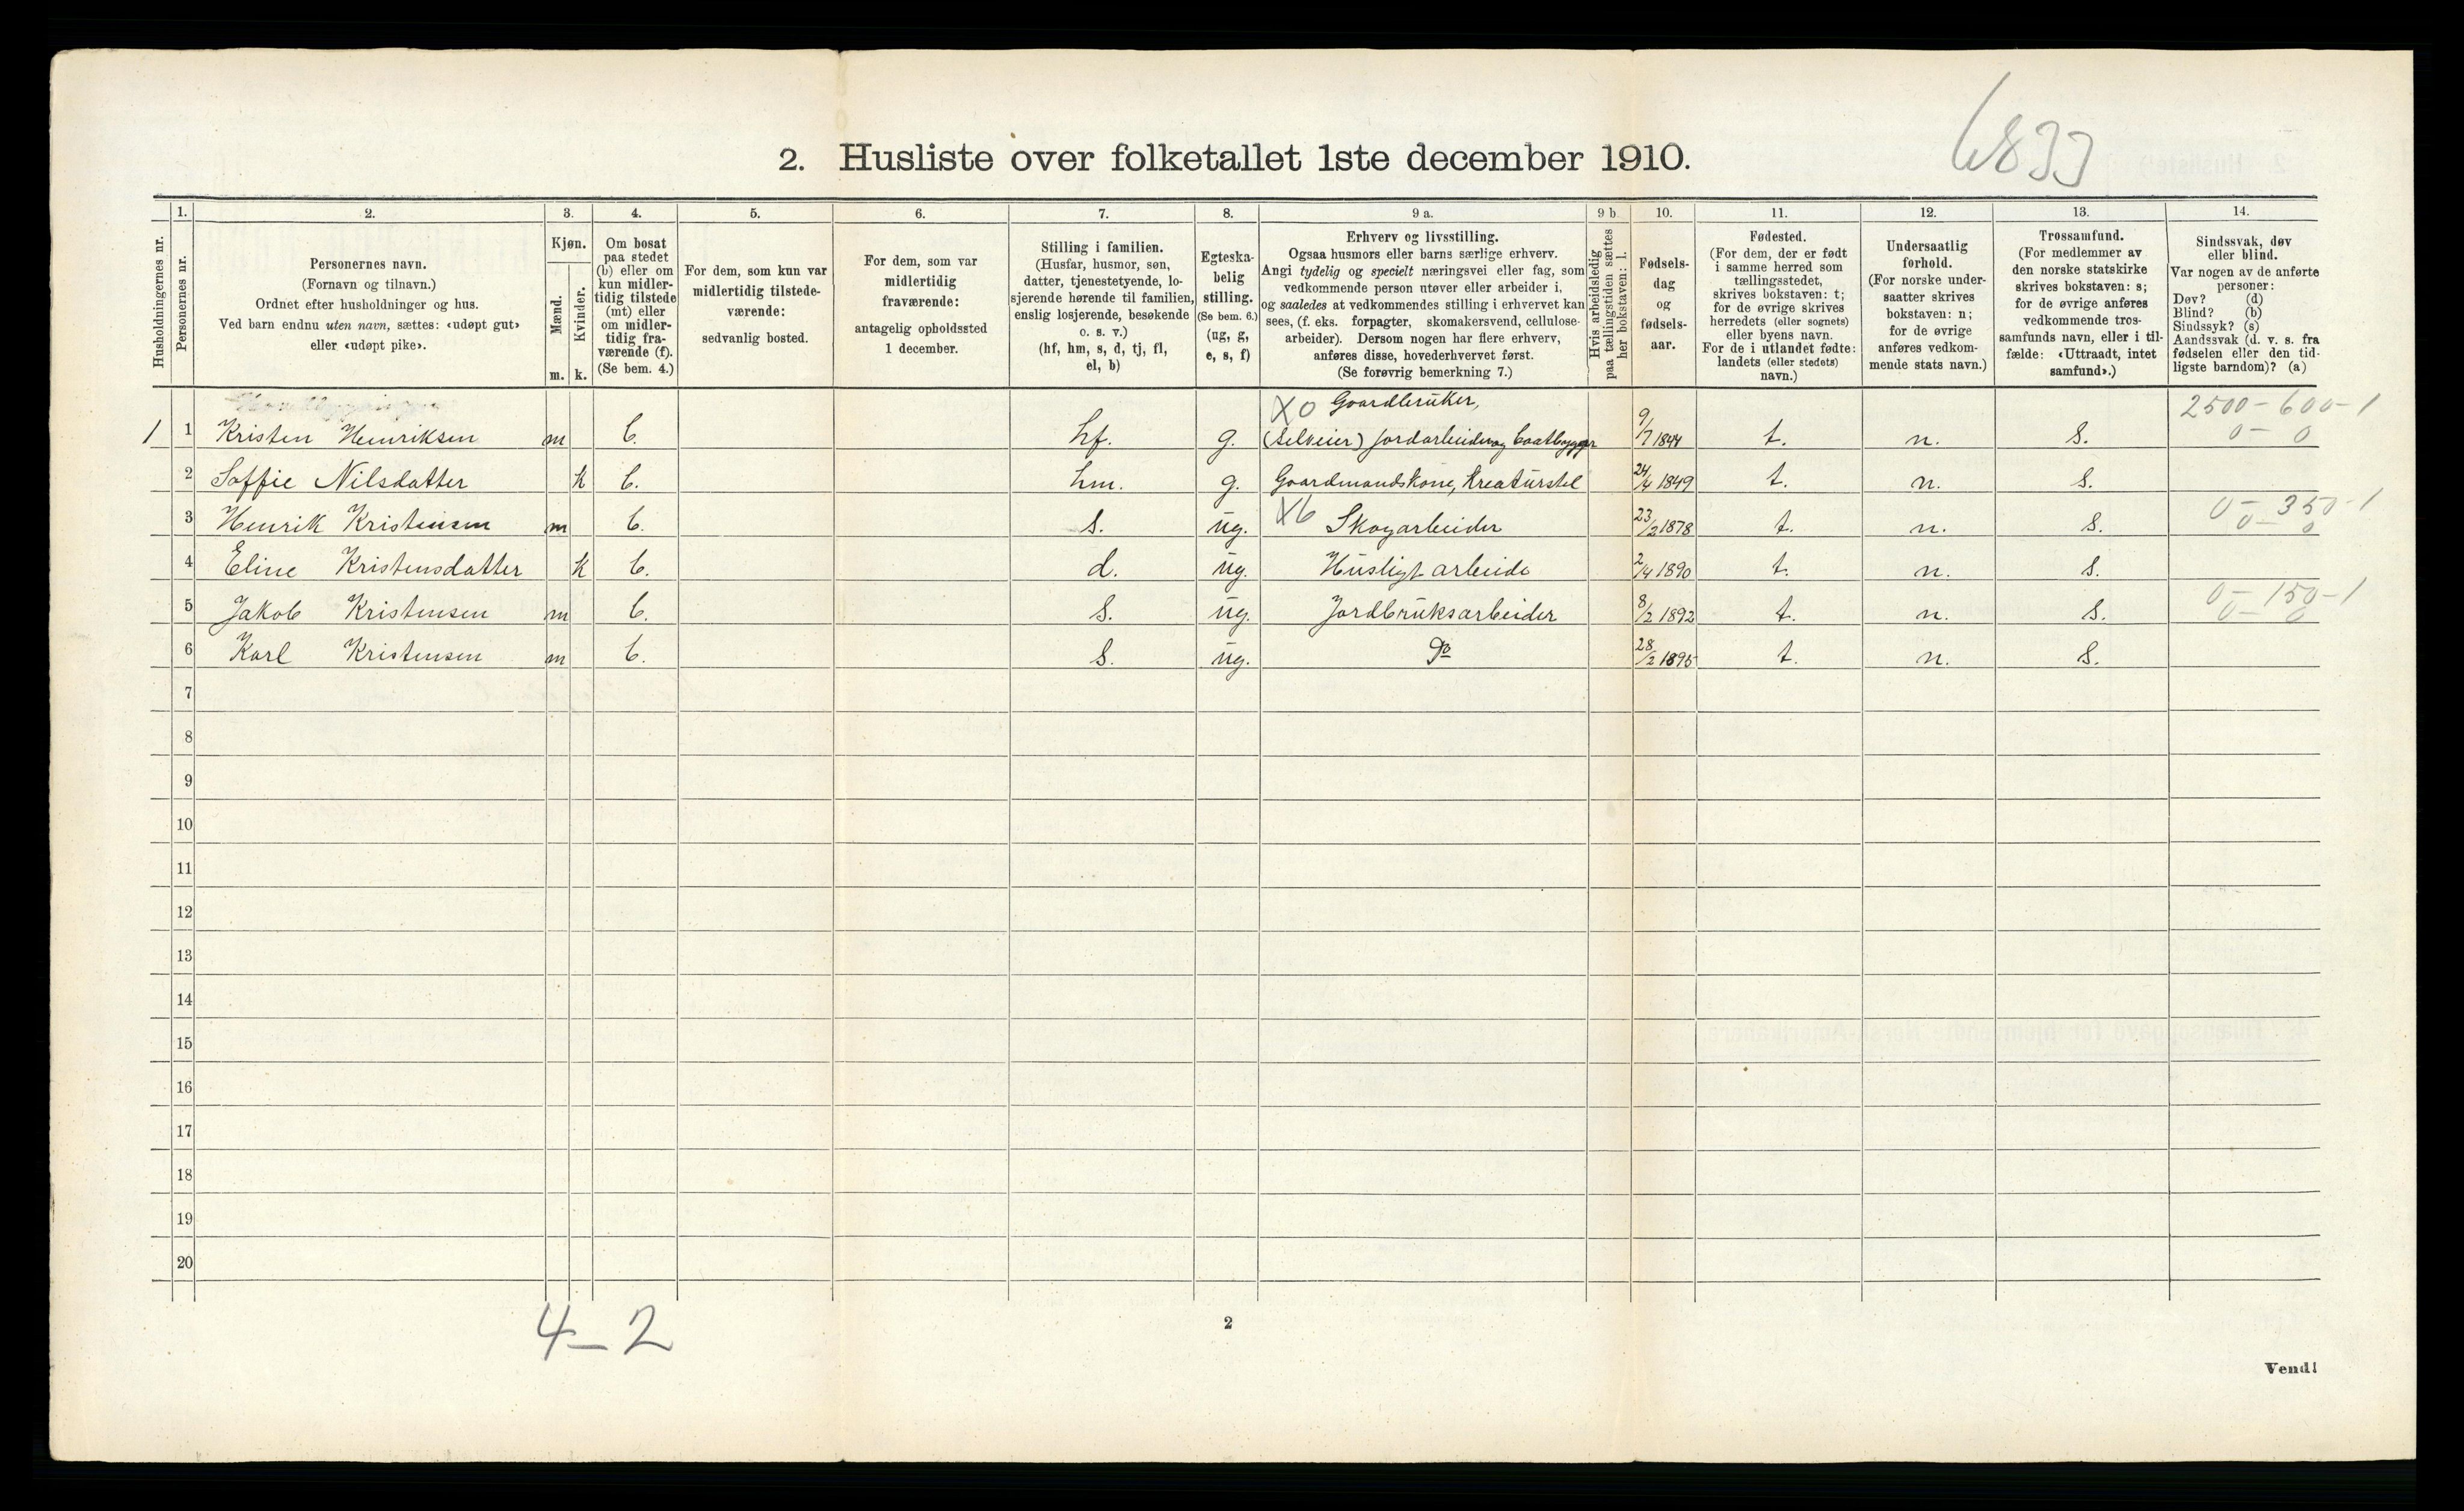 6833
2. Husliste over folketallet 1ste december 1910.
Husholdningernes nr.
1.
Personernes nr.
2.
Personernes navn.
(Fornavn og tilnavn.)
Ordnet efter husholdninger og hus.
Ved barn endnu uten navn, sættes: «udøpt gut»
eller «udøpt pike».
3.
Kjøn.
Mænd.
m.
Kvinder.
k.
4.
Om bosat
paa stedet
(b) eller om
kun midler-
tidig tilstede
(mt) eller
om midler-
tidig fra-
værende (f).
(Se bem. 4.)
5.
For dem, som kun var
midlertidig tilstede-
værende:
sedvanlig bosted.
6.
For dem, som var
midlertidig
fraværende:
antagelig opholdssted
1 december.
7.
Stilling i familien.
(Husfar, husmor, søn,
datter, tjenestetyende, lo-
sjerende hørende til familien,
enslig losjerende, besøkende
o. s. v.)
(hf, hm, s, d, tj, fl,
el, b)
8.
Egteska-
belig
stilling.
(Se bem. 6.)
(ug, g,
e, s, f)
9 a.
Erhverv og livsstilling.
Ogsaa husmors eller barns særlige erhverv.
Angi tydelig og specielt næringsvei eller fag, som
vedkommende person utøver eller arbeider i,
og saaledes at vedkommendes stilling i erhvervet kan
sees, (f. eks. forpagter, skomakersvend, cellulose-
arbeider). Dersom nogen har flere erhverv,
anføres disse, hovederhvervet først.
(Se forøvrig bemerkning 7.)
9 b.
Hvis arbeidsledig
paa tællingstiden sættes
her bokstaven: l.
10.
Fødsels-
dag
og
fødsels-
aar.
11.
Fødested.
(For dem, der er født
i samme herred som
tællingsstedet,
skrives bokstaven: t;
for de øvrige skrives
herredets (eller sognets)
eller byens navn.
For de i utlandet fødte:
landets (eller stedets)
navn.)
12.
Undersaatlig
forhold.
(For norske under-
saatter skrives
bokstaven: n;
for de øvrige
anføres vedkom-
mende stats navn.)
13.
Trossamfund.
(For medlemmer av
den norske statskirke
skrives bokstaven: s;
for de øvrige anføres
vedkommende tros-
samfunds navn, eller i til-
fælde: «Uttraadt, intet
samfund».)
14.
Sindssvak, døv
eller blind.
Var nogen av de anførte
personer:
Døv? (d)
Blind? (b)
Sindssyk? (s)
Aandssvak (d. v. s. fra
fødselen eller den tid-
ligste barndom)? (a)
X0 Gaardbruker, 2500-600-1
1 1 Kristen Henriksen m b. hf. g. (Selveier) jordarbeide og baatbygger 9/7 1844 t. n. s. 0-0
2 Soffie Nilsdatter k b. hm. g. Gaardmandskone, Kreaturstel 24/4 1849 t. n. s.
3 Henrik Kristensen m b. s. ug. X6 Skogarbeider 23/2 1878 t. n. s. 0-350-1
0-0
4 Eline Kristensdatter k b. d. ug. Husligt arbeide 2/4 1890 t. n. s.
5 Jakob Kristensen m b. s. ug. Jordbruksarbeider 8/2 1892 t. n. s. 0-150-1
0-0
6 Karl Kristensen m b. s. ug. Do 28/2 1895 t. n. s.
7
8
9
10
11
12
13
14
15
16
17
18
19
20
4-2
2
Vend!